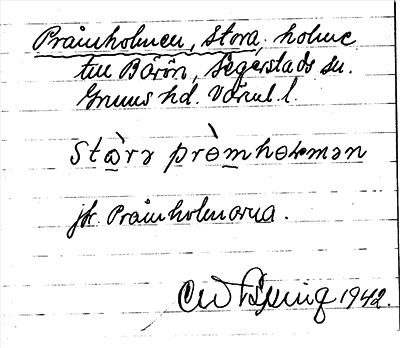 Pråmholmen, Stora, holme
till Bärön, Segerstads sn.
Grums hd. Värml. l.
Stòra prå̀mhoɫmən
jfr Pråmholmarna.
1942.